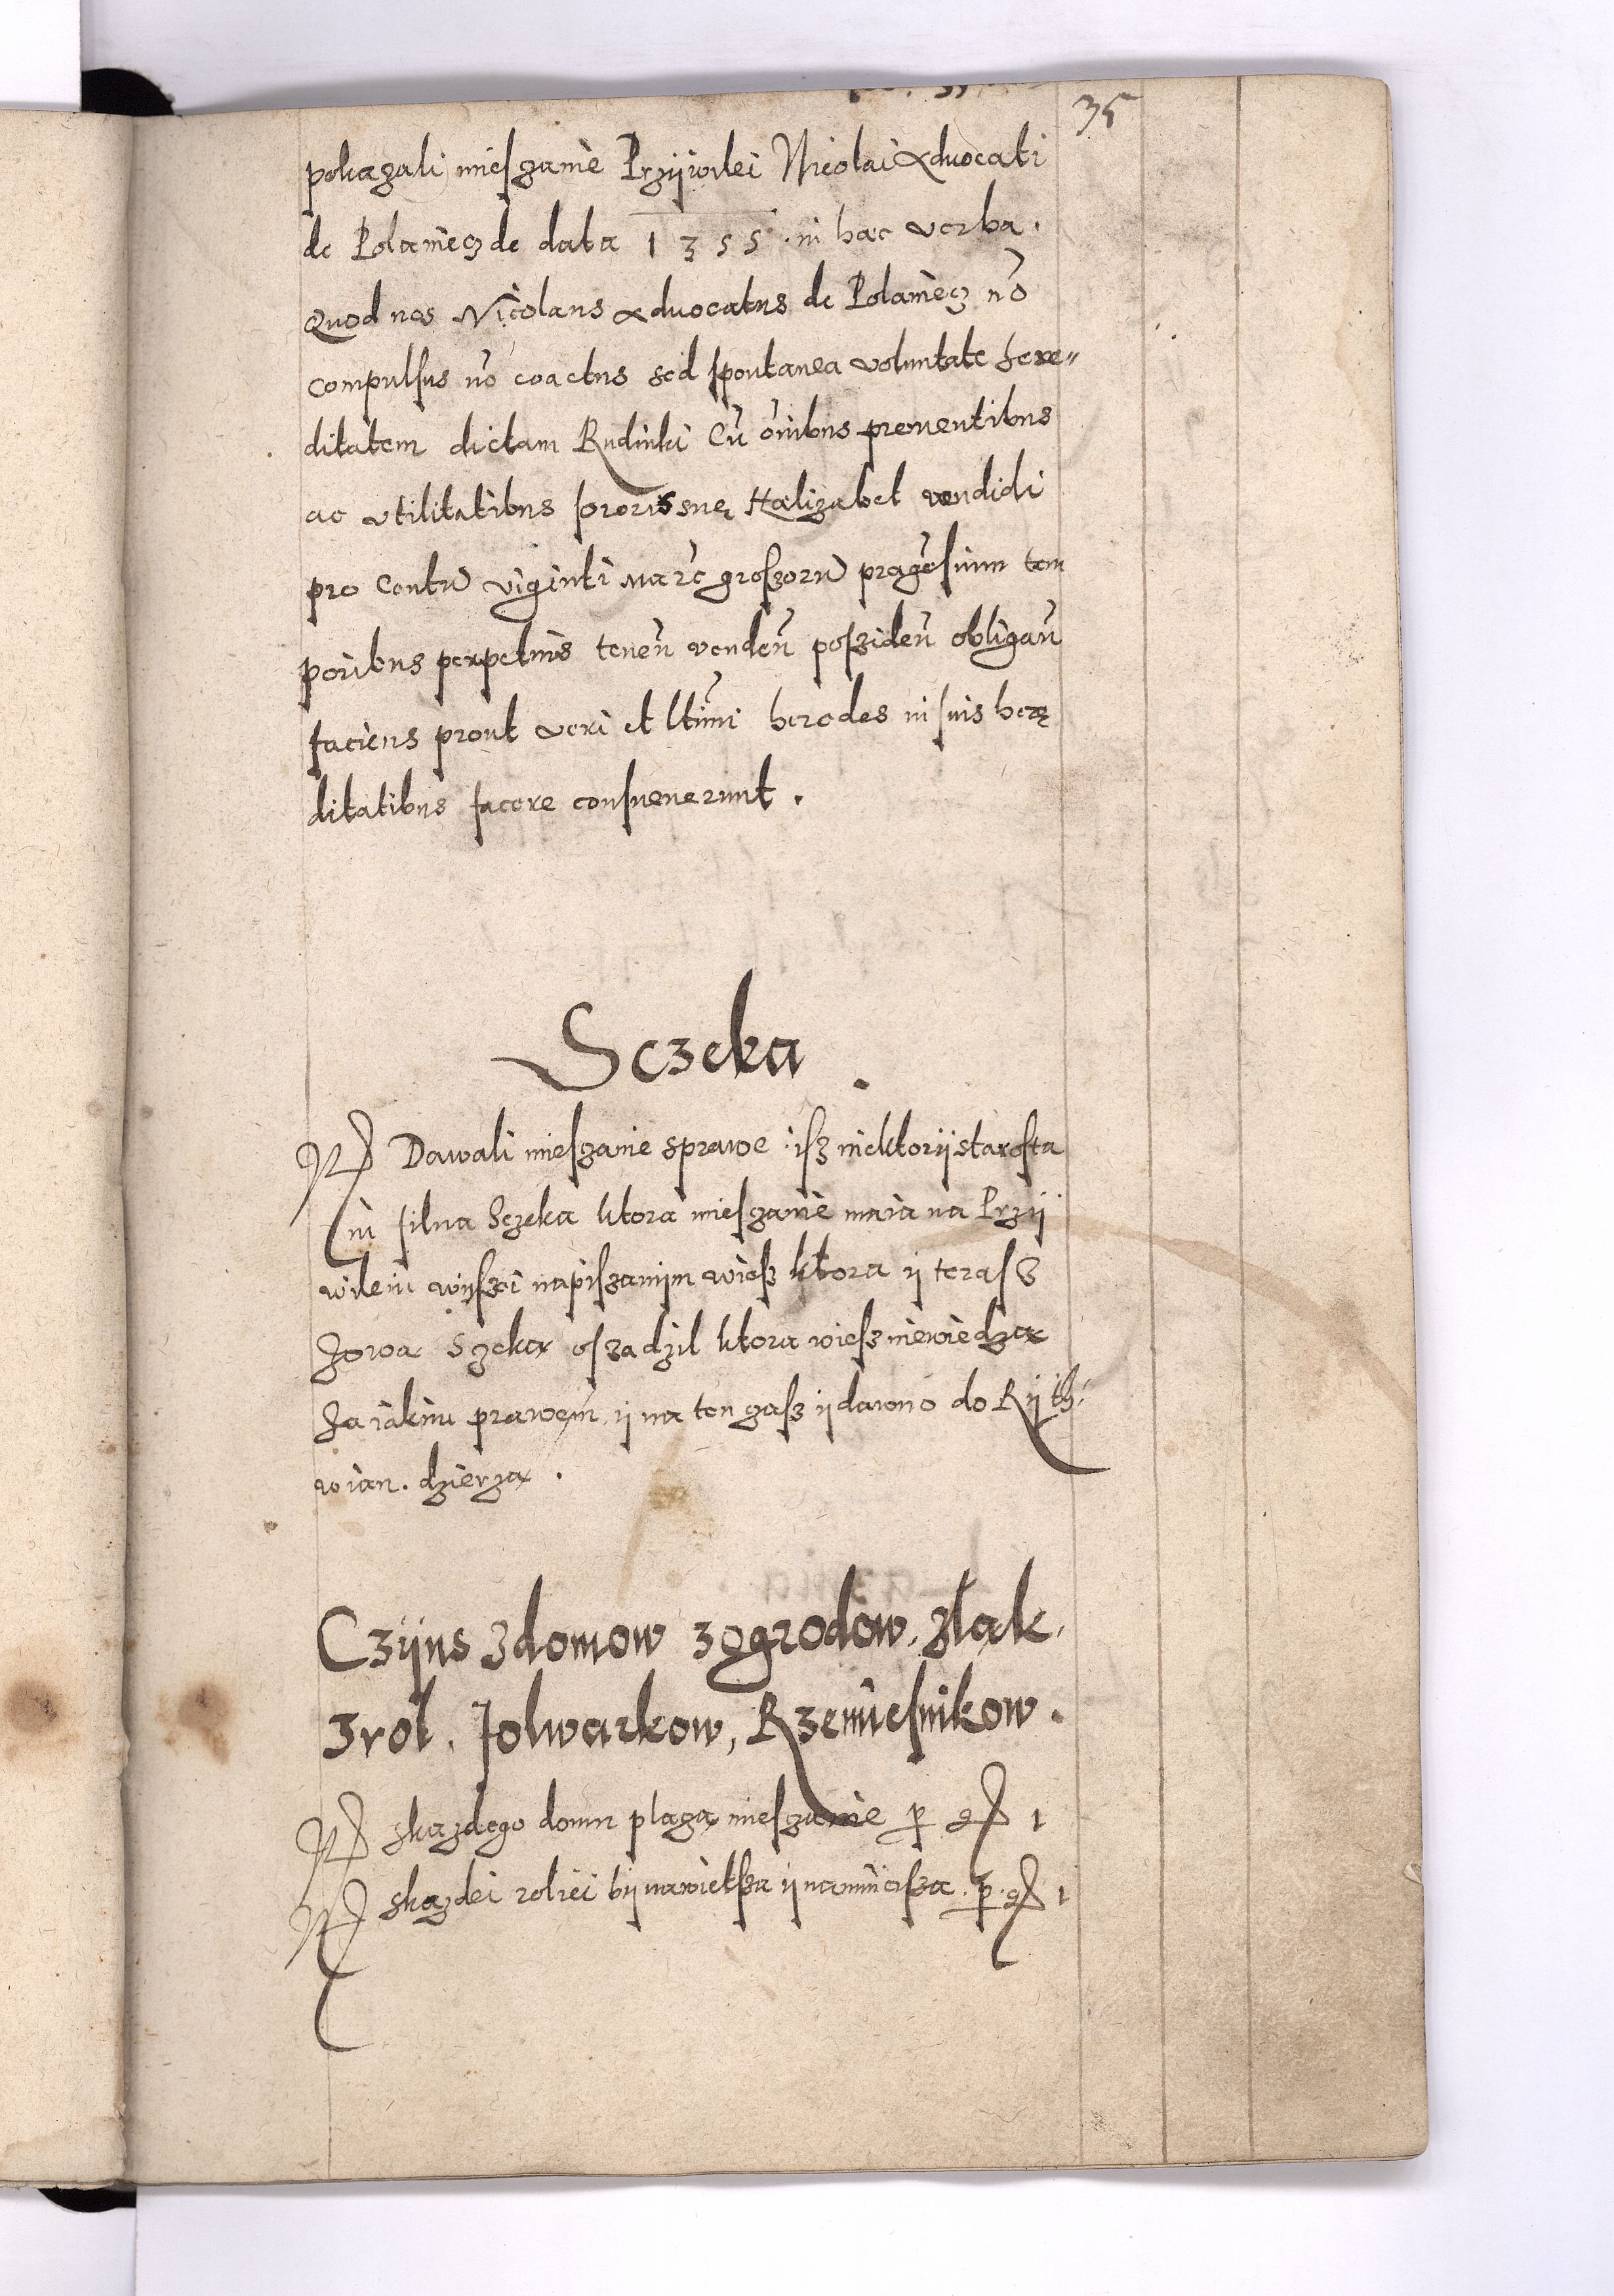 35
pokazali mieszanie Przÿwilei Nicolai Advocati
de Polaniecz de data 1355 in haec verba.
Quod nos Nicolaus Advocatus de Polaniecz nō
compulsus nō coactus sed spontanea voluntate here„
ditatem dictam Rudinki Cū ōnibus prouentibus
ac vtilitatibus sororis suę Halizabet vendidi
pro centū viginti marc̄ groszorū pragēsium tem
poribus perpetuis tenen̄ venden̄ possiden̄ obligan̄
faciens prout veri et ltīmi heredes in suis herę
ditatibus facere consueuerunt.
Sczeka.
Dawali mieszanie sprawe isz niektorÿ starosta
im silna Sczeka ktora miesczanie maia na Przÿ
wileiu wÿszēi napiszanÿm wiesz ktora ÿ terasz
zowa Szeka oszadzil ktora wiesz niewiedza
za iakim prawem ÿ na ten czasz ÿ dawno do Rÿth„
wian. dzierza.
Czÿns zdomow zogrodow, zlak,
zrol, folwarkow, Rzemiesnikow.
zkazdego domu placza miesczanie p gr 1
zkazdei roliei bÿ nawietsza ÿ namnieisza. p. gr 1